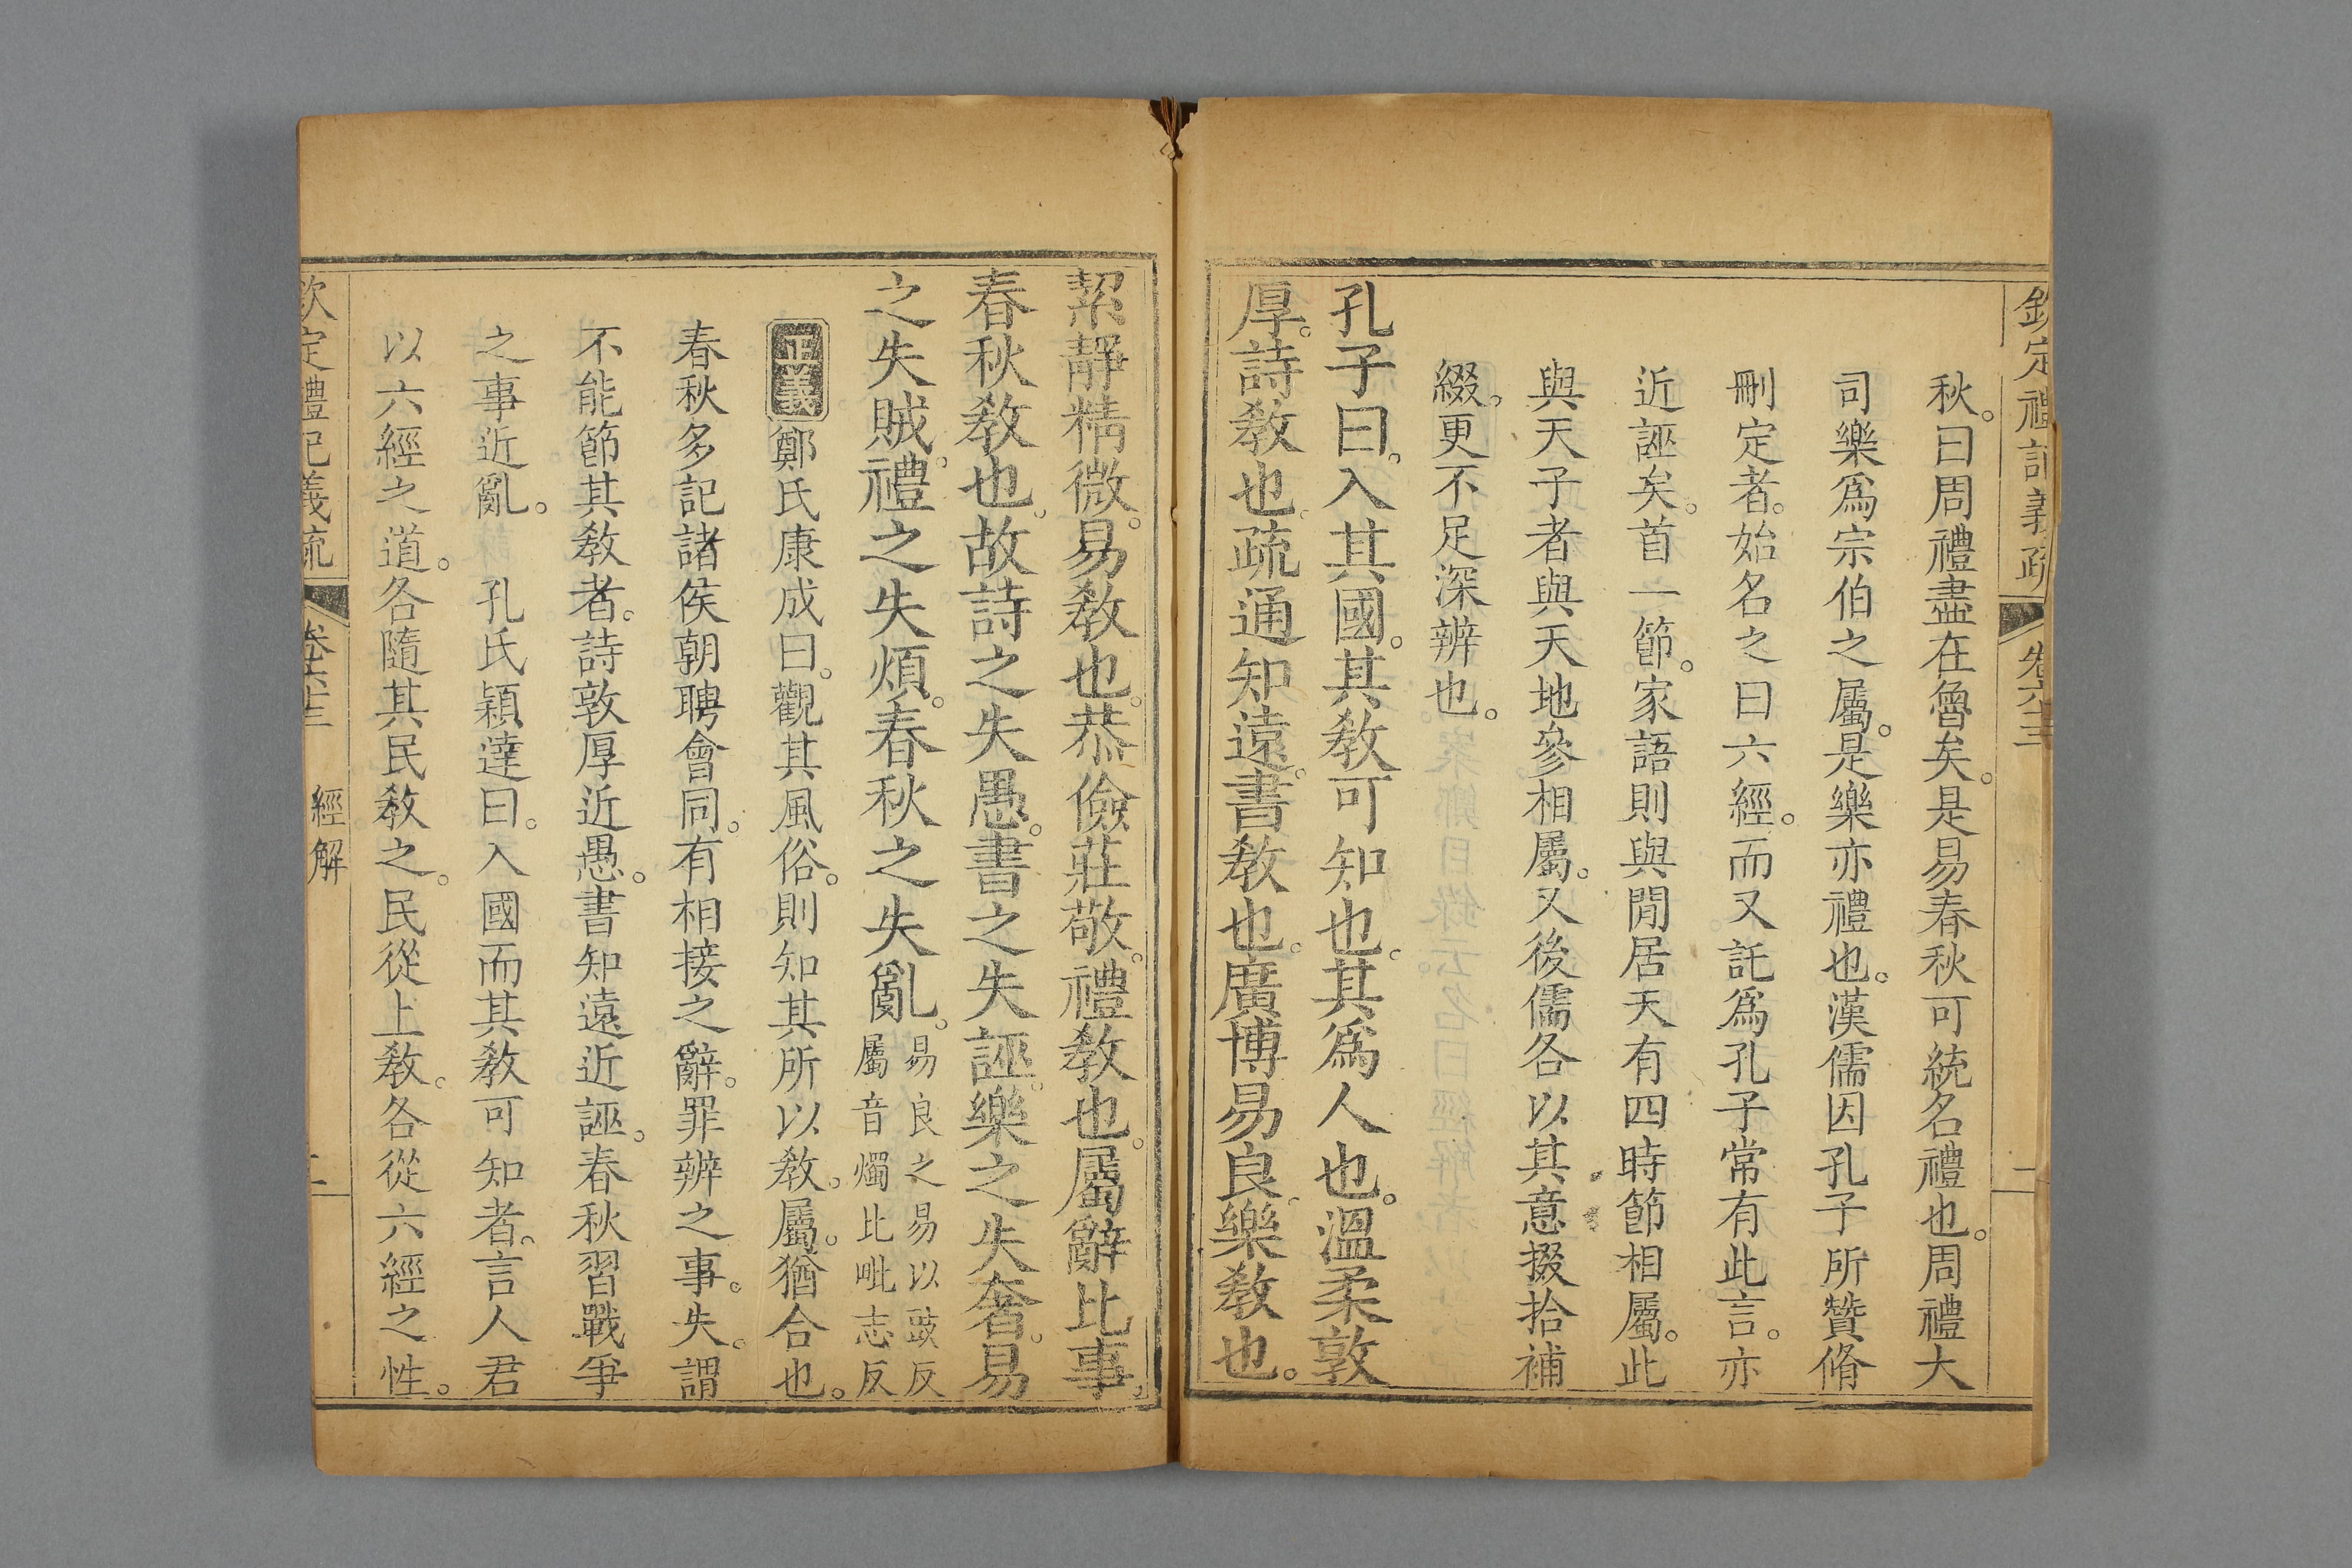 欽定禮記義疏 卷六十三 二
秋。曰周禮盡在魯矣。是易春秋可統名禮也。周禮大
司樂爲宗伯之屬。是樂亦禮也。漢儒因孔子所贊脩
刪定者。始名之曰六經。而又託爲孔子常有此言。亦
近誣矣。首一節。家語則與閒居天有四時節相屬。此
與天子者與天地參相屬。又後儒各以其意掇拾補
綴。更不足深辨也。
孔子曰。入其國。其敎可知也。其爲人也。溫柔敦
厚。詩敎也。疏通知遠。書敎也。廣博易良。樂敎也。
絜靜精微。易敎也。恭儉莊敬。禮敎也。屬辭比事。
春秋敎也。故詩之失愚。書之失誣。樂之失奢。易
之失賊。禮之失煩。春秋之失亂。
易良之易以豉反
屬音燭比毗志反
正義鄭氏康成曰。觀其風俗。則知其所以敎。屬。猶合也。
春秋多記諸侯朝聘會同。有相接之辭。罪辨之事。失。謂
不能節其敎者。詩敦厚近愚。書知遠近誣。春秋習戰爭
之事近亂。 孔氏穎達曰。入國而其敎可知者。言人君
以六經之道。各隨其民敎之。民從上敎。各從六經之性。
欽定禮記義疏 卷六十三 經解 二